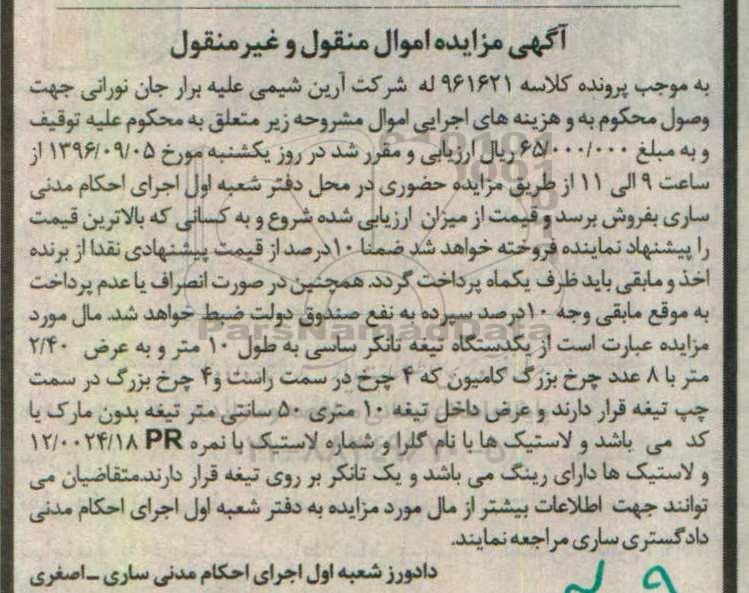 آگهی مزایده اموال منقول و غیر منقول
به موجب پرونده کلاسه ۹۶۱۶۲۱ له شرکت آرین شیمی علیه برار جان نورانی جهت
وصول محکوم به و هزینه های اجرایی اموال مشروحه زیر متعلق به محکوم علیه توقیف
و به مبلغ ۶۵/۰۰۰/۰۰۰ ریال ارزیابی و مقرر شد در روز یکشنبه مورخ ۱۳۹۶/۰۹/۰۵ از
ساعت ۹ الی ۱۱ از طریق مزایده حضوری در محل دفتر شعبه اول اجرای احکام مدنی
ساری بفروش برسد و قیمت از میزان ارزیابی شده شروع و به کسانی که بالاترین قیمت
را پیشنهاد نماینده فروخته خواهد شد ضمنا ۱۰درصد از قیمت پیشنهادی نقدا از برنده
اخذ و مابقی باید ظرف یکماه پرداخت گردد. همچنین در صورت انصراف یا عدم پرداخت
به موقع مابقی وجه ۱۰درصد سپرده به نفع صندوق دولت ضبط خواهد شد. مال مورد
مزایده عبارت است از یکدستگاه تیغه تانکر ساسی به طول ۱۰ متر و به عرض ۲/۴۰
متر با ۸ عدد چرخ بزرگ کامیون که ۴ چرخ در سمت راست و۴ چرخ بزرگ در سمت
چپ تیغه قرار دارند و عرض داخل تیغه ۱۰ متری ۵۰ سانتی متر تیغه بدون مارک یا
کد می باشد و لاستیک ها با نام گلرا و شماره لاستیک با نمره ۱۲/۰۰۲۴/۱۸ PR
و لاستیک ها دارای رینگ می باشد و یک تانکر بر روی تیغه قرار دارند.متقاضیان می
توانند جهت اطلاعات بیشتر از مال مورد مزایده به دفتر شعبه اول اجرای احکام مدنی
دادگستری ساری مراجعه نمایند.
دادورز شعبه اول اجرای احکام مدنی ساری -اصغری
ParsNamadData